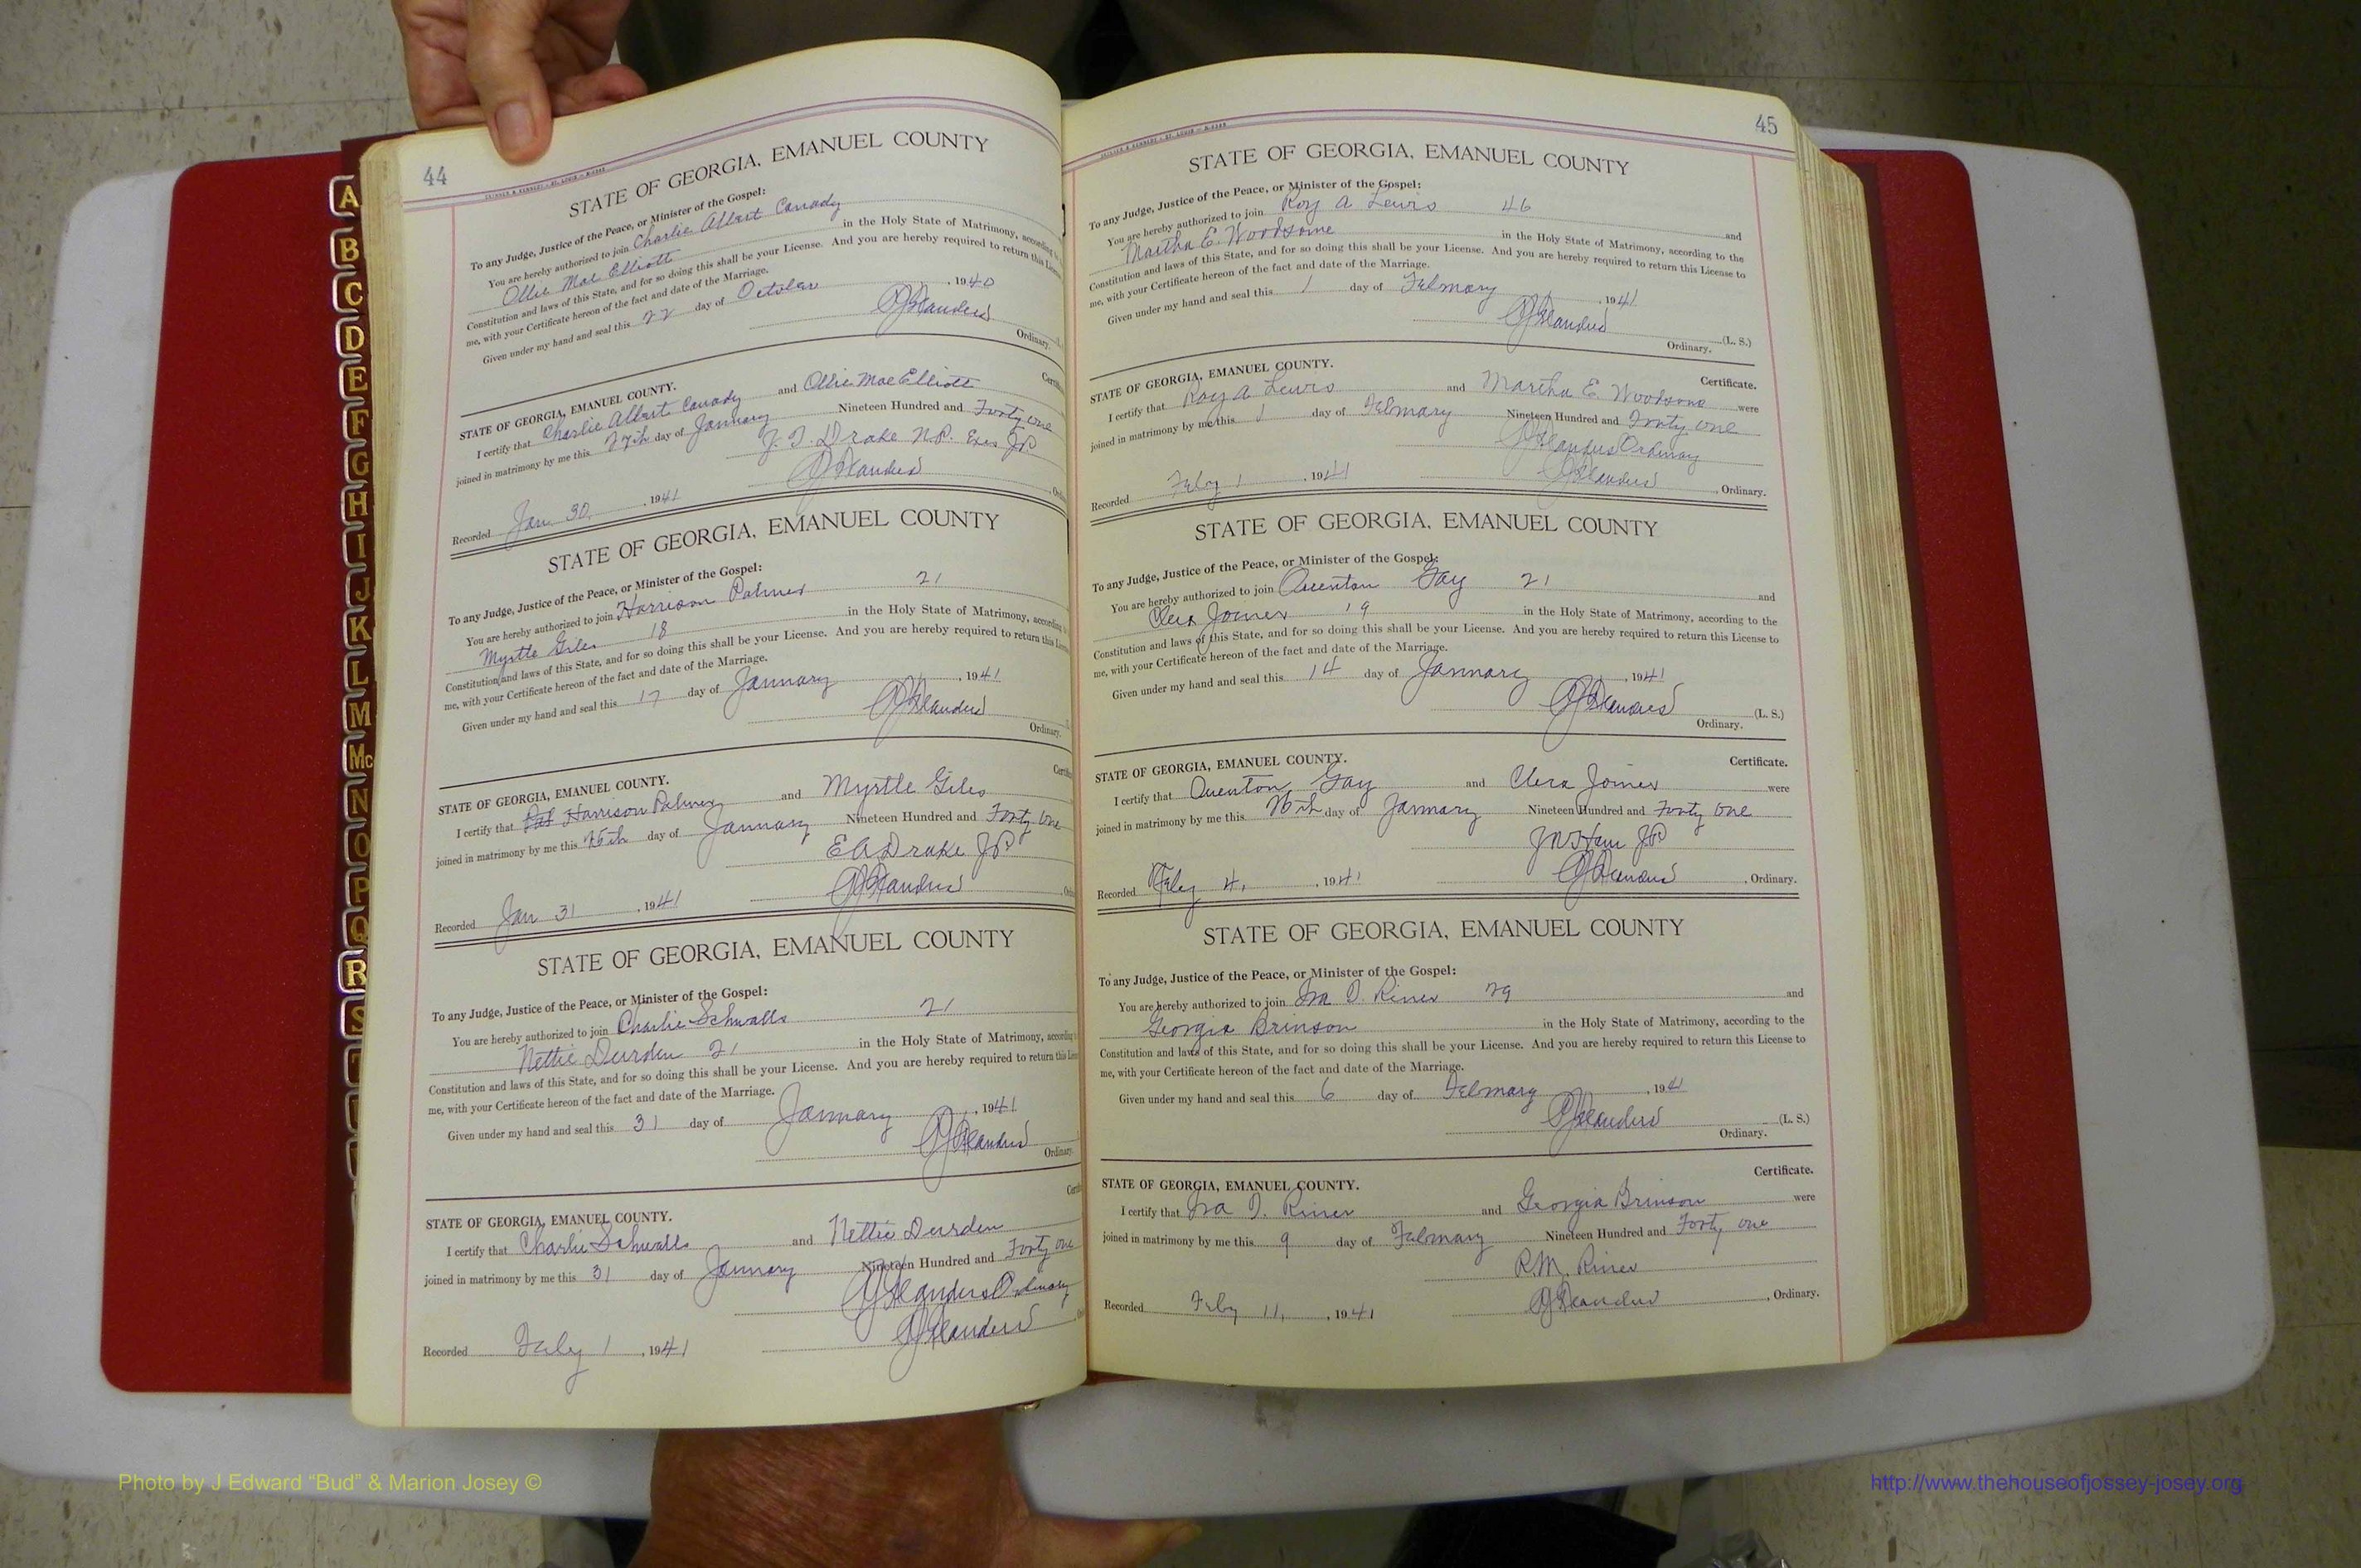 44
STATE OF GEORGIA, EMANUEL COUNTY
To any Judge, Justice of the Peace, or Minister of the Gospel:
You are hereby authorized to join Charlie Albert Canady
Ollie Mae Elliott in the Holy State of Matrimony, according
Constitution and laws of this State, and for so doing this shall be your License. And you are hereby required to return this
me, with your Certificate hereof of the fact and date of the Marriage.
Given under my hand and seal this 22 day of October, 1940
Ordinary.
STATE OF GEORGIA, EMANUEL COUNTY.
I certify that Charlie Albert Canady and Ollie Mae Elliott
joined in matrimony by me this 27th day of January Nineteen Hundred and Forty one
Drake N.P. Exo JP
Recorded Jan 30, 1941
STATE OF GEORGIA, EMANUEL COUNTY
To any Judge, Justice of the Peace, or Minister of the Gospel:
You are hereby authorized to join Harrison Palmer 21
Myrtle Giles 18 in the Holy State of Matrimony, according
Constitution and laws of this State, and for so doing this shall be your License. And you are hereby required to return this
me, with your Certificate hereof of the fact and date of the Marriage.
Given under my hand and seal this 17 day of January, 1941
Ordinary.
STATE OF GEORGIA, EMANUEL COUNTY.
I certify that Harrison Palmer and Myrtle Giles
joined in matrimony by me this 25th day of January Nineteen Hundred and Forty one
E A Drake JP
Recorded Jan 31, 1941
STATE OF GEORGIA, EMANUEL COUNTY
To any Judge, Justice of the Peace, or Minister of the Gospel:
You are hereby authorized to join Charlie Schwalls 21
Nettie Durden 21 in the Holy State of Matrimony, according
Constitution and laws of this State, and for so doing this shall be your License. And you are hereby required to return this
me, with your Certificate hereof of the fact and date of the Marriage.
Given under my hand and seal this 31 day of January, 1941
Ordinary.
STATE OF GEORGIA, EMANUEL COUNTY.
I certify that Charlie Schwalls and Nettie Durden
joined in matrimony by me this 31 day of January Nineteen Hundred and Forty one
Ordinary
Recorded Feby 1, 1941
45
STATE OF GEORGIA, EMANUEL COUNTY
To any Judge, Justice of the Peace, or Minister of the Gospel:
You are hereby authorized to join Roy A Lewis 46 and
Martha E. Woodsome in the Holy State of Matrimony, according to the
Constitution and laws of this State, and for so doing this shall be your License. And you are hereby required to return this License to
me, with your Certificate hereon of the fact and date of the Marriage.
Given under my hand and seal this 1 day of February, 1941
(L. S.)
Ordinary.
STATE OF GEORGIA, EMANUEL COUNTY. Certificate.
I certify that Roy A Lewis and Martha E. Woodsome were
joined in matrimony by me this 1 day of February Nineteen Hundred and Forty one
Ordinary
Recorded Feby 1, 1941 Ordinary.
STATE OF GEORGIA, EMANUEL COUNTY
To any Judge, Justice of the Peace, or Minister of the Gospel:
You are hereby authorized to join Quenton Gay 21 and
Clera Joiner 19 in the Holy State of Matrimony, according to the
Constitution and laws of this State, and for so doing this shall be your License. And you are hereby required to return this License to
me, with your Certificate hereon of the fact and date of the Marriage.
Given under my hand and seal this 14 day of January, 1941
(L. S.)
Ordinary.
STATE OF GEORGIA, EMANUEL COUNTY. Certificate.
I certify that Quenton Gay and Clera Joiner were
joined in matrimony by me this day of January Nineteen Hundred and Forty one
JP
Recorded Feby 4, 1941 Ordinary.
STATE OF GEORGIA, EMANUEL COUNTY
To any Judge, Justice of the Peace, or Minister of the Gospel:
You are hereby authorized to join Ira D. Riner 29 and
Georgia Brinson in the Holy State of Matrimony, according to the
Constitution and laws of this State, and for so doing this shall be your License. And you are hereby required to return this License to
me, with your Certificate hereon of the fact and date of the Marriage.
Given under my hand and seal this 6 day of February, 1941
(L. S.)
Ordinary.
STATE OF GEORGIA, EMANUEL COUNTY. Certificate.
I certify that Ira D. Riner and Georgia Brinson were
joined in matrimony by me this 9 day of February Nineteen Hundred and Forty one
R.M. Riner
Recorded Feby 11, 1941 Ordinary.
A
B
C
D
E
F
G
H
I
J
K
L
M
Mc
N
O
P
Q
R
S
T
Photo by J Edward “Bud” & Marion Josey ©
http://www.thehouseofjossey-josey.org